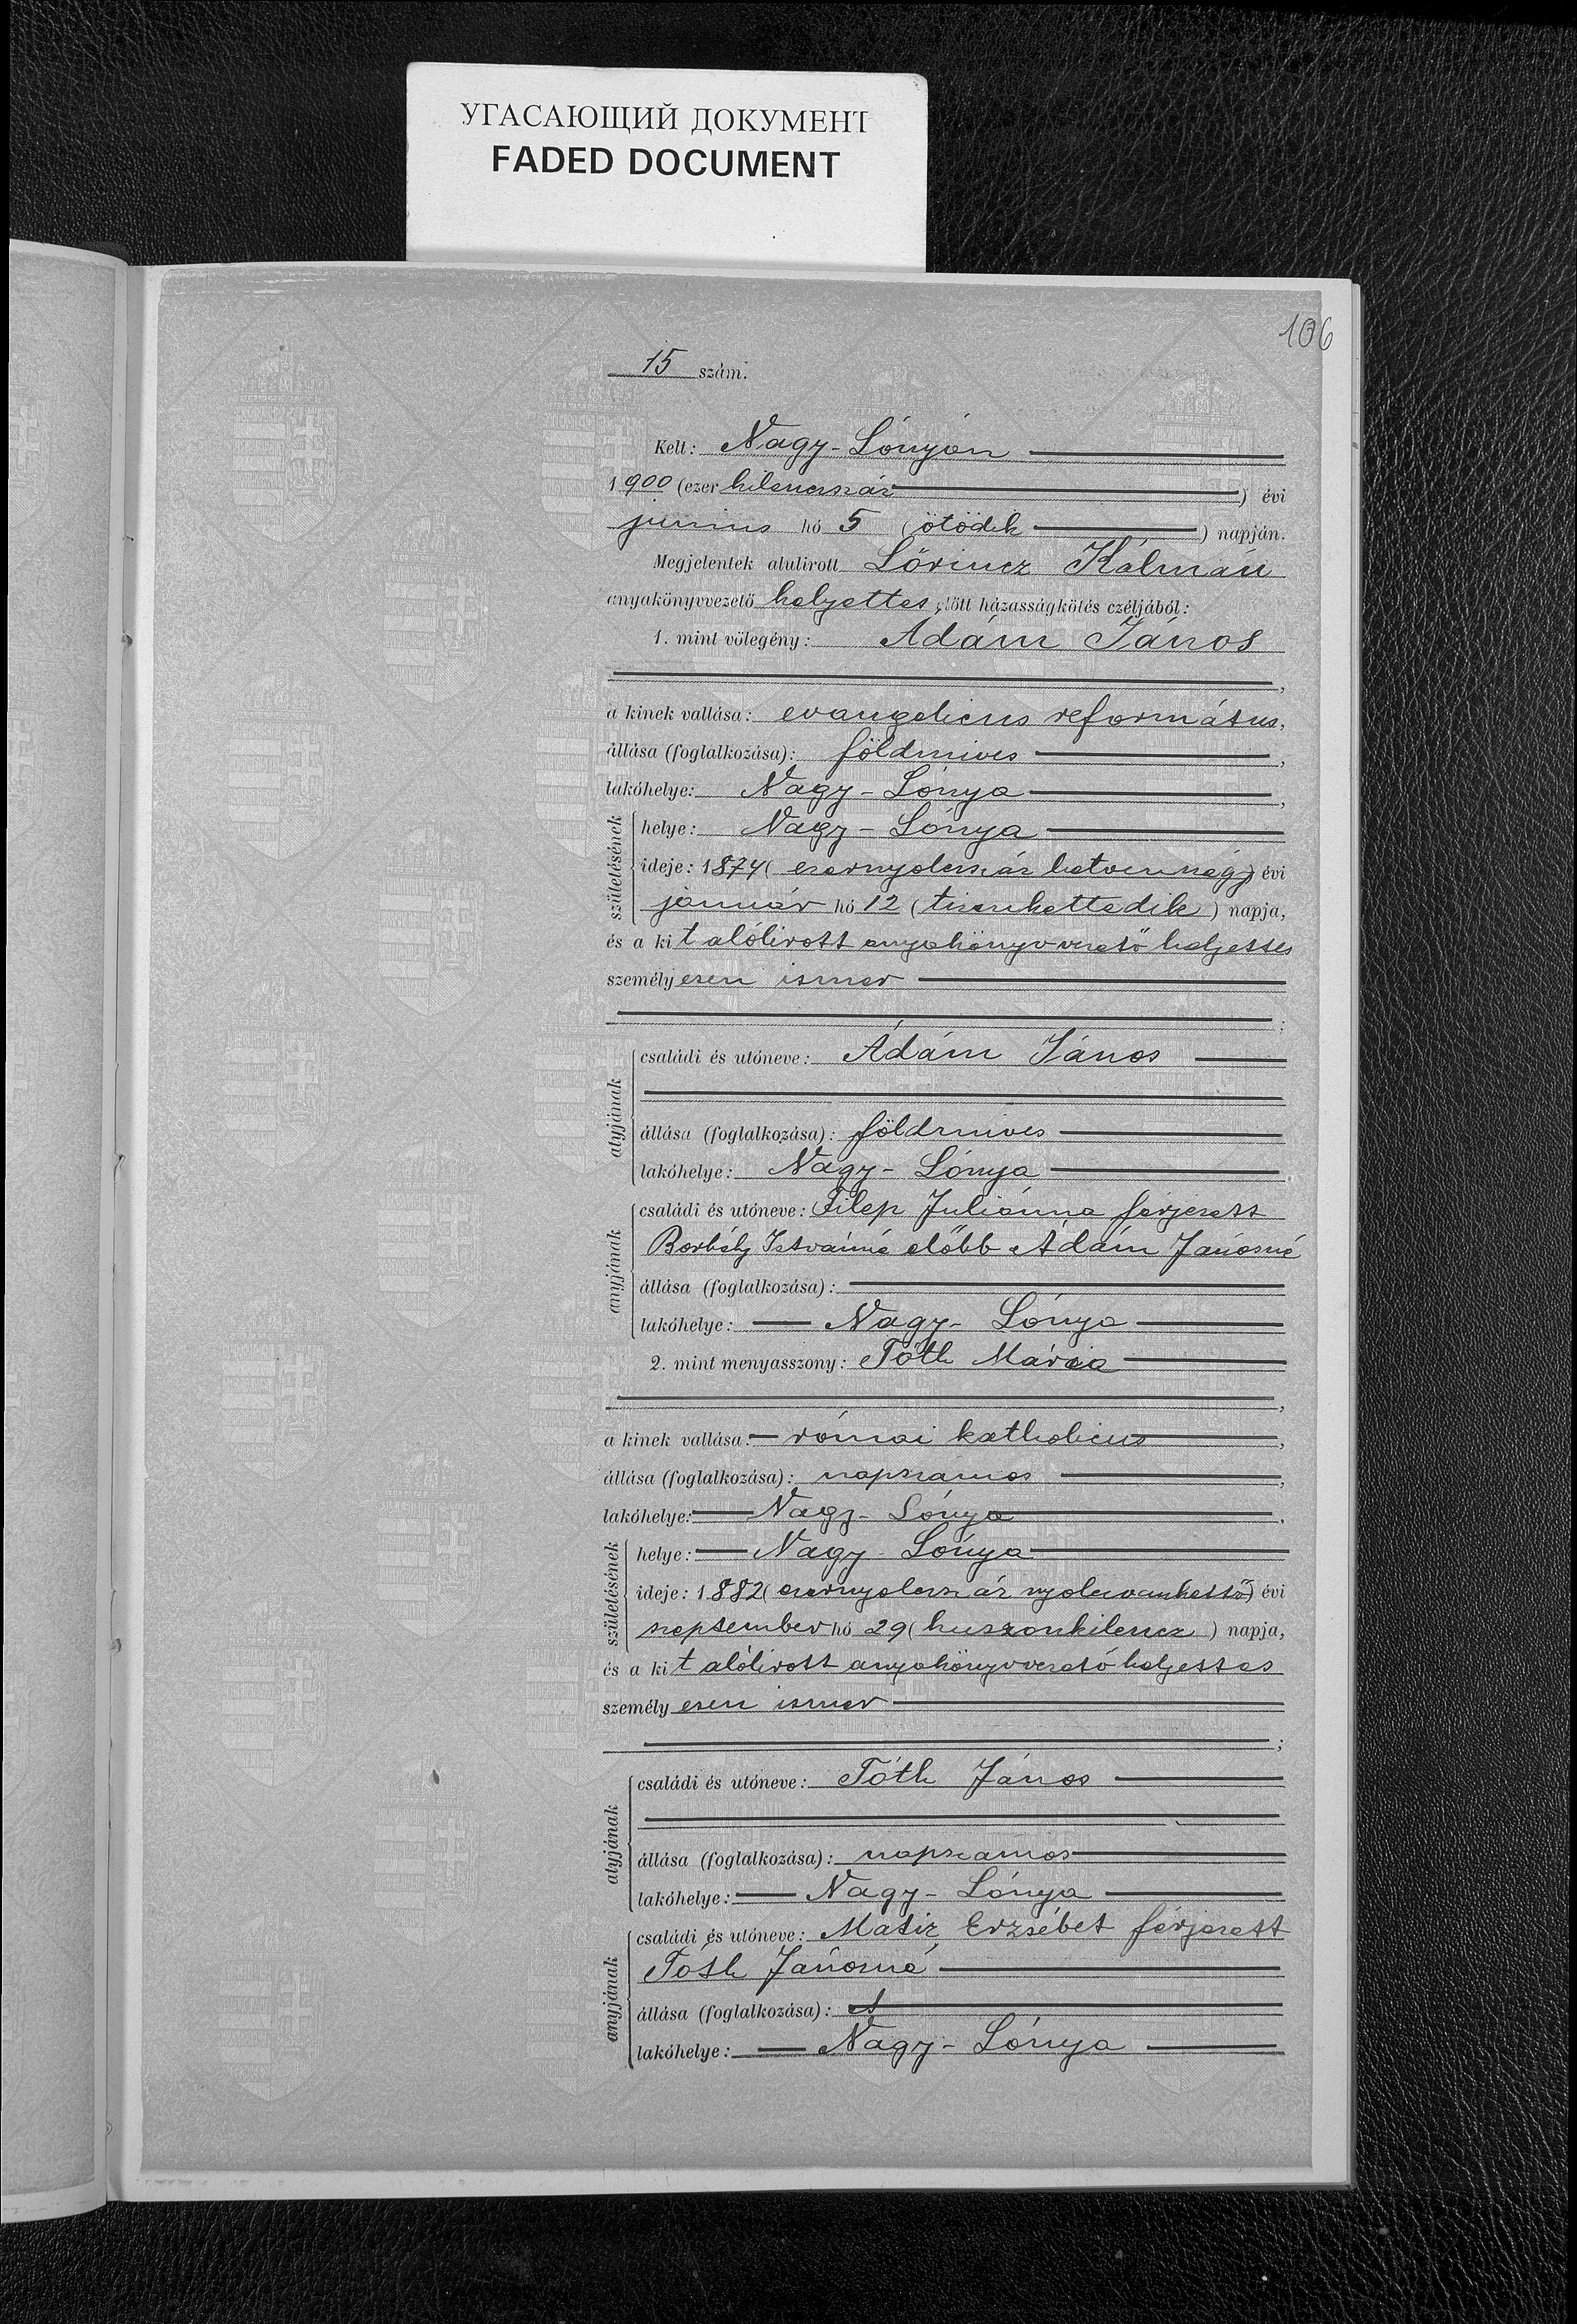 УГАСАЮЩИЙ ДОКУМЕНТ
FADED DOCUMENT
106
15 szám.
Kelt: Nagy-Lónyán
1900 (ezer kilenczszáz ) évi
junius hó 5 (ötödik ) napján.
Megjelentek alulirott Lőrincz Kálmán
anyakönyvvezető helyettes előtt házasságkötés czéljából:
1. mint vőlegény: Ádám János
a kinek vallása: evangelicus református,
állása (foglalkozása): földmives ,
lakóhelye: Nagy-Lónya ,
születésének
helye: Nagy-Lónya
ideje: 1874 (ezernyolczszáz hetvennégy) évi
január hó 12 (tizenkettedik) napja,
és a kit alólirott anyakönyvvezető helyettes
személyesen ismer
;
atyjának
családi és utóneve: Ádám János
állása (foglalkozása): földmives
lakóhelye: Nagy-Lónya .
anyjának
családi és utóneve: Filep Juliánna férjezett
Borbély Istvánné előbb Ádám Jánosné
állása (foglalkozása):
lakóhelye: Nagy-Lónya
2. mint menyasszony: Tóth Mária
,
a kinek vallása: római katholicus ,
állása (foglalkozása): napszámos ,
lakóhelye: Nagy-Lónya ,
születésének
helye: Nagy-Lónya
ideje: 1882 (ezernyolczszáz nyolczvankettő) évi
szeptember hó 29 (huszonkilencz) napja,
és a kit alólirott anyakönyvvezető helyettes
személyesen ismer
;
atyjának
családi és utóneve: Tóth János
állása (foglalkozása): napszámos
lakóhelye: Nagy-Lónya
anyjának
családi és utóneve: Matiz Erzsébet férjezett
Tóth Jánosné
állása (foglalkozása):
lakóhelye: Nagy-Lónya